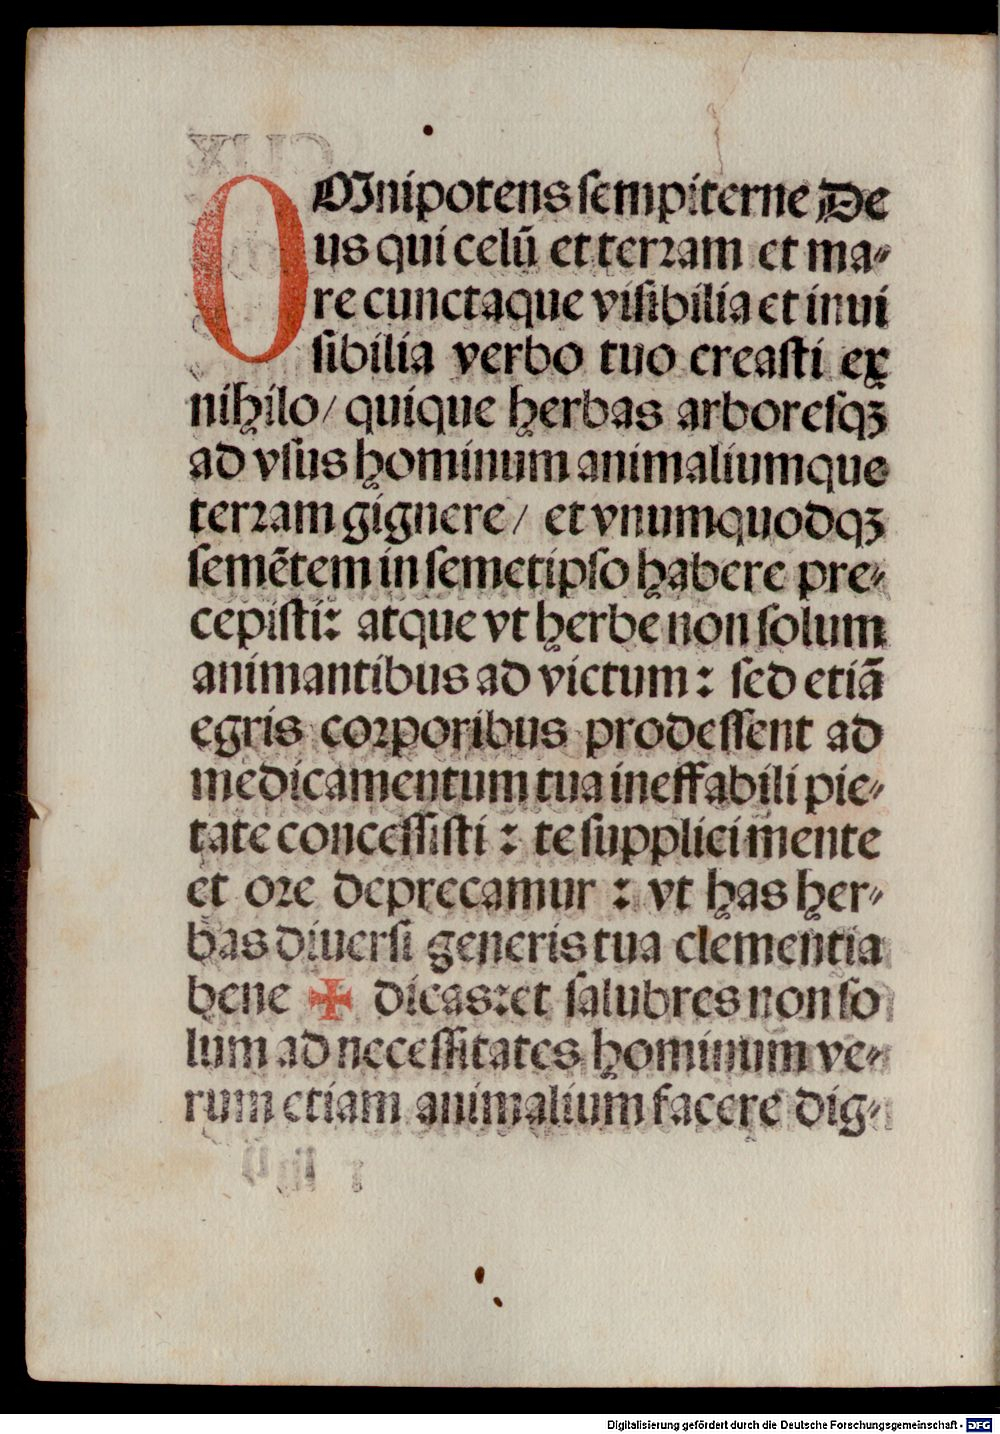 OMnipotens sempiterne De
us qui celū et terram et ma-
re cunctaque visibilia et inui
sibilia verbo tuo creasti ex
nihilo/ quique herbas arboresqꝫ
ad vsus hominum animaliumque
terram gignere/ et vnumquodqꝫ
semētem in semetipso habere pre-
cepisti: atque vt herbe non solum
animantibus ad victum: sed etiā
egris corporibus prodessent ad
medicamentum tua ineffabili pie-
tate concessisti: te supplici mente
et ore deprecamur: vt has her-
bas diuersi generis tua clementia
bene ✠ dicas: et salubres non so
lum ad necessitates hominum ve-
rum etiam animalium facere dig-
Digitalisierung gefördert durch die Deutsche Forschungsgemeinschaft - DFG